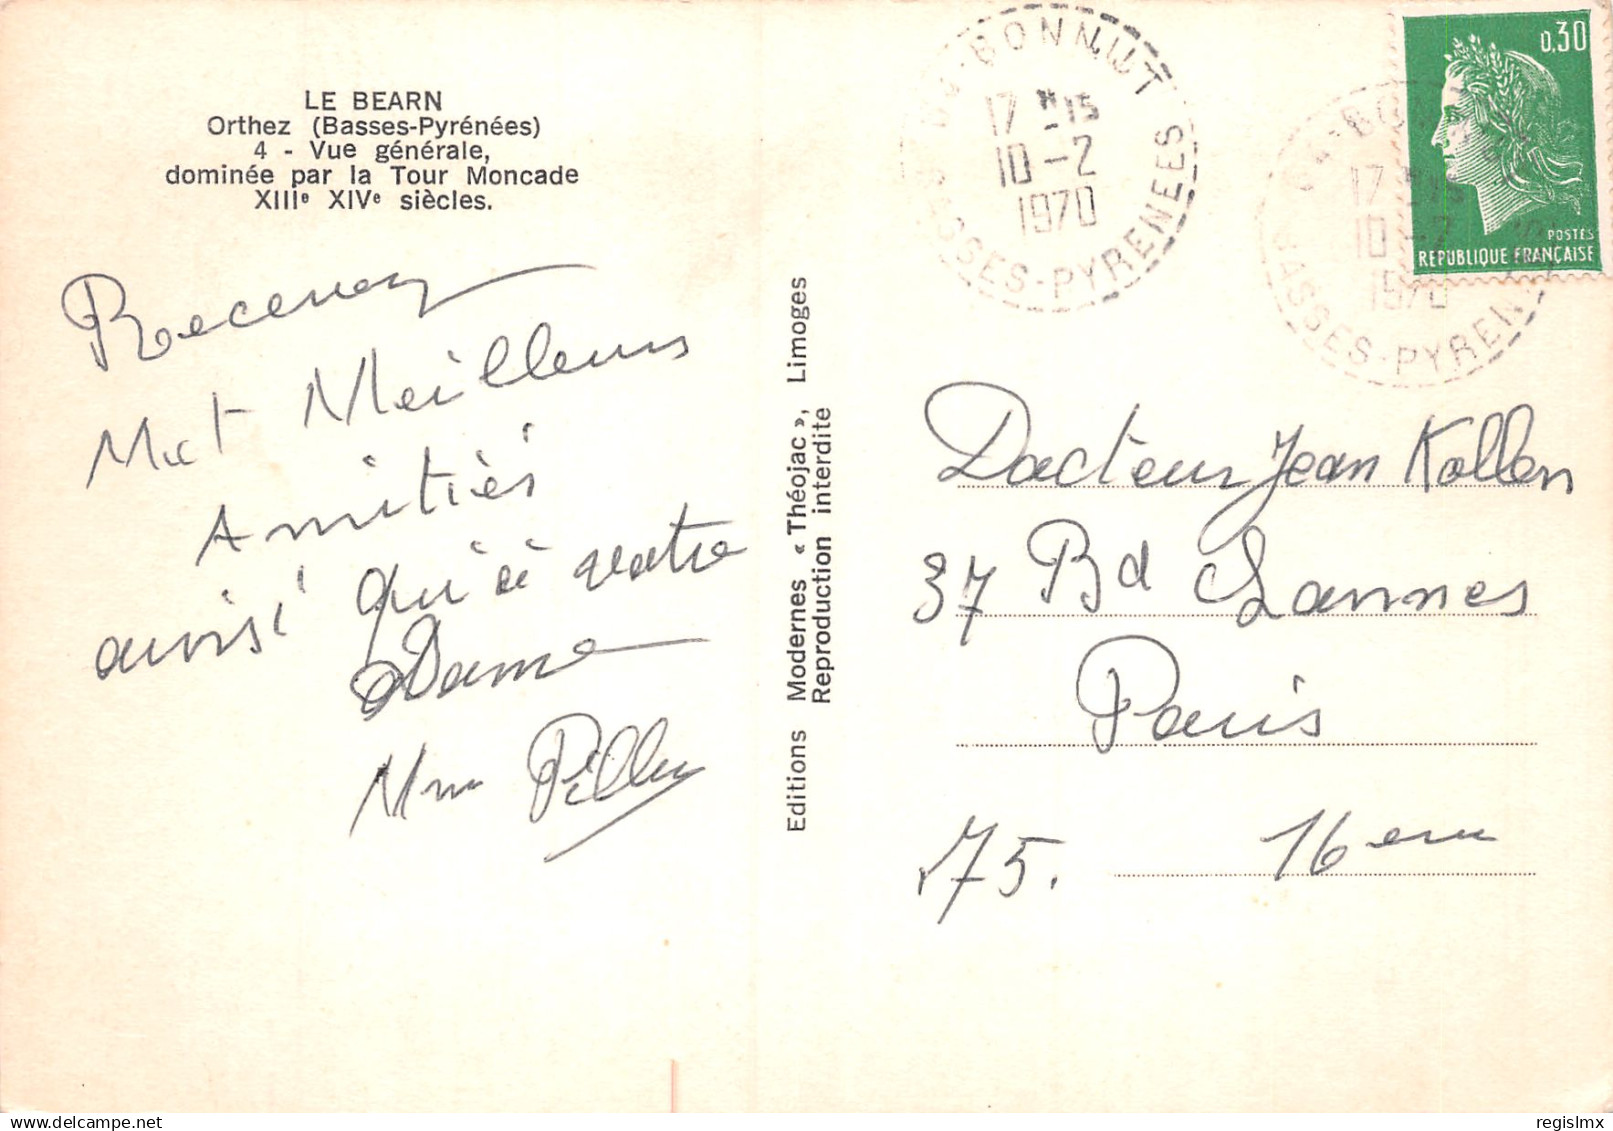 LE BEARN
Orthez (Basses-Pyrénées)
4 - Vue générale,
dominée par la Tour Moncade
XIIIe XIVe siècles.
Recevez
Meilleurs
Amitiés
qu'à votre
Dame
Mme
Editions Modernes « Théojac », Limoges
Reproduction interdite
BONNUT
17 H 15
10 - 2
1970
BASSES-PYRENEES
0,30
POSTES
REPUBLIQUE FRANÇAISE
17 15
10 -2
1970
BASSES-PYRENEES
Docteur Jean Kollen
37 Bd Lannes
Paris
75. 16eme
regislmx